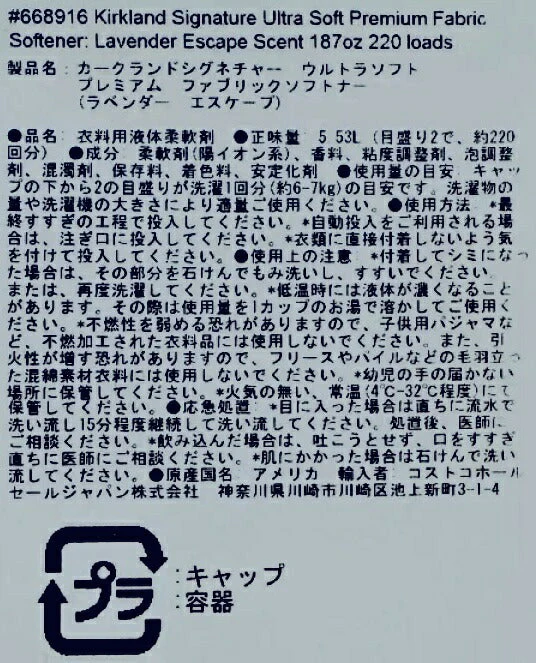 #668916 Kirkland Signature Ultra Soft Premium Fabric
Softener: Lavender Escape Scent 187oz 220 loads
製品名：カークランドシグネチャー　ウルトラソフト
プレミアム　ファブリックソフトナー
(ラベンダー　エスケープ)
●品名：衣料用液体柔軟剤　●正味量：5.53L (目盛り2で、約220
回分)　●成分：柔軟剤(陽イオン系)、香料、粘度調整剤、泡調整
剤、混濁剤、保存料、着色料、安定化剤　●使用量の目安：キャッ
プの下から2の目盛りが洗濯1回分(約6-7kg)の目安です。洗濯物の
量や洗濯機の大きさにより適量ご使用ください。●使用方法：*最
終すすぎの工程で投入してください。*自動投入をご利用される場
合は、注ぎ口に投入してください。*衣類に直接付着しないよう気
を付けて投入してください。●使用上の注意：*付着してシミになっ
た場合は、その部分を石けんでもみ洗いし、すすいでください。
または、再度洗濯してください。*低温時には液体が濃くなること
があります。その際は使用量を1カップのお湯で溶かしてご使用く
ださい。*不燃性を弱める恐れがありますので、子供用パジャマな
ど、不燃加工された衣料品には使用しないでください。また、引
火性が増す恐れがありますので、フリースやパイルなどの毛羽立っ
た混綿素材衣料には使用しないでください。*幼児の手の届かない
場所に保管してください。*火気の無い、常温(4℃-32℃程度)にて
保管してください。●応急処置：*目に入った場合は直ちに流水で
洗い流し15分程度継続して洗い流してください。処置後、医師に
ご相談ください。*飲み込んだ場合は、吐こうとせず、口をすすぎ
直ちに医師にご相談ください。*肌にかかった場合は石けんで洗い
流してください。●原産国名：アメリカ　輸入者：コストコホール
セールジャパン株式会社　神奈川県川崎市川崎区池上新町3-1-4
プラ
：キャップ
：容器